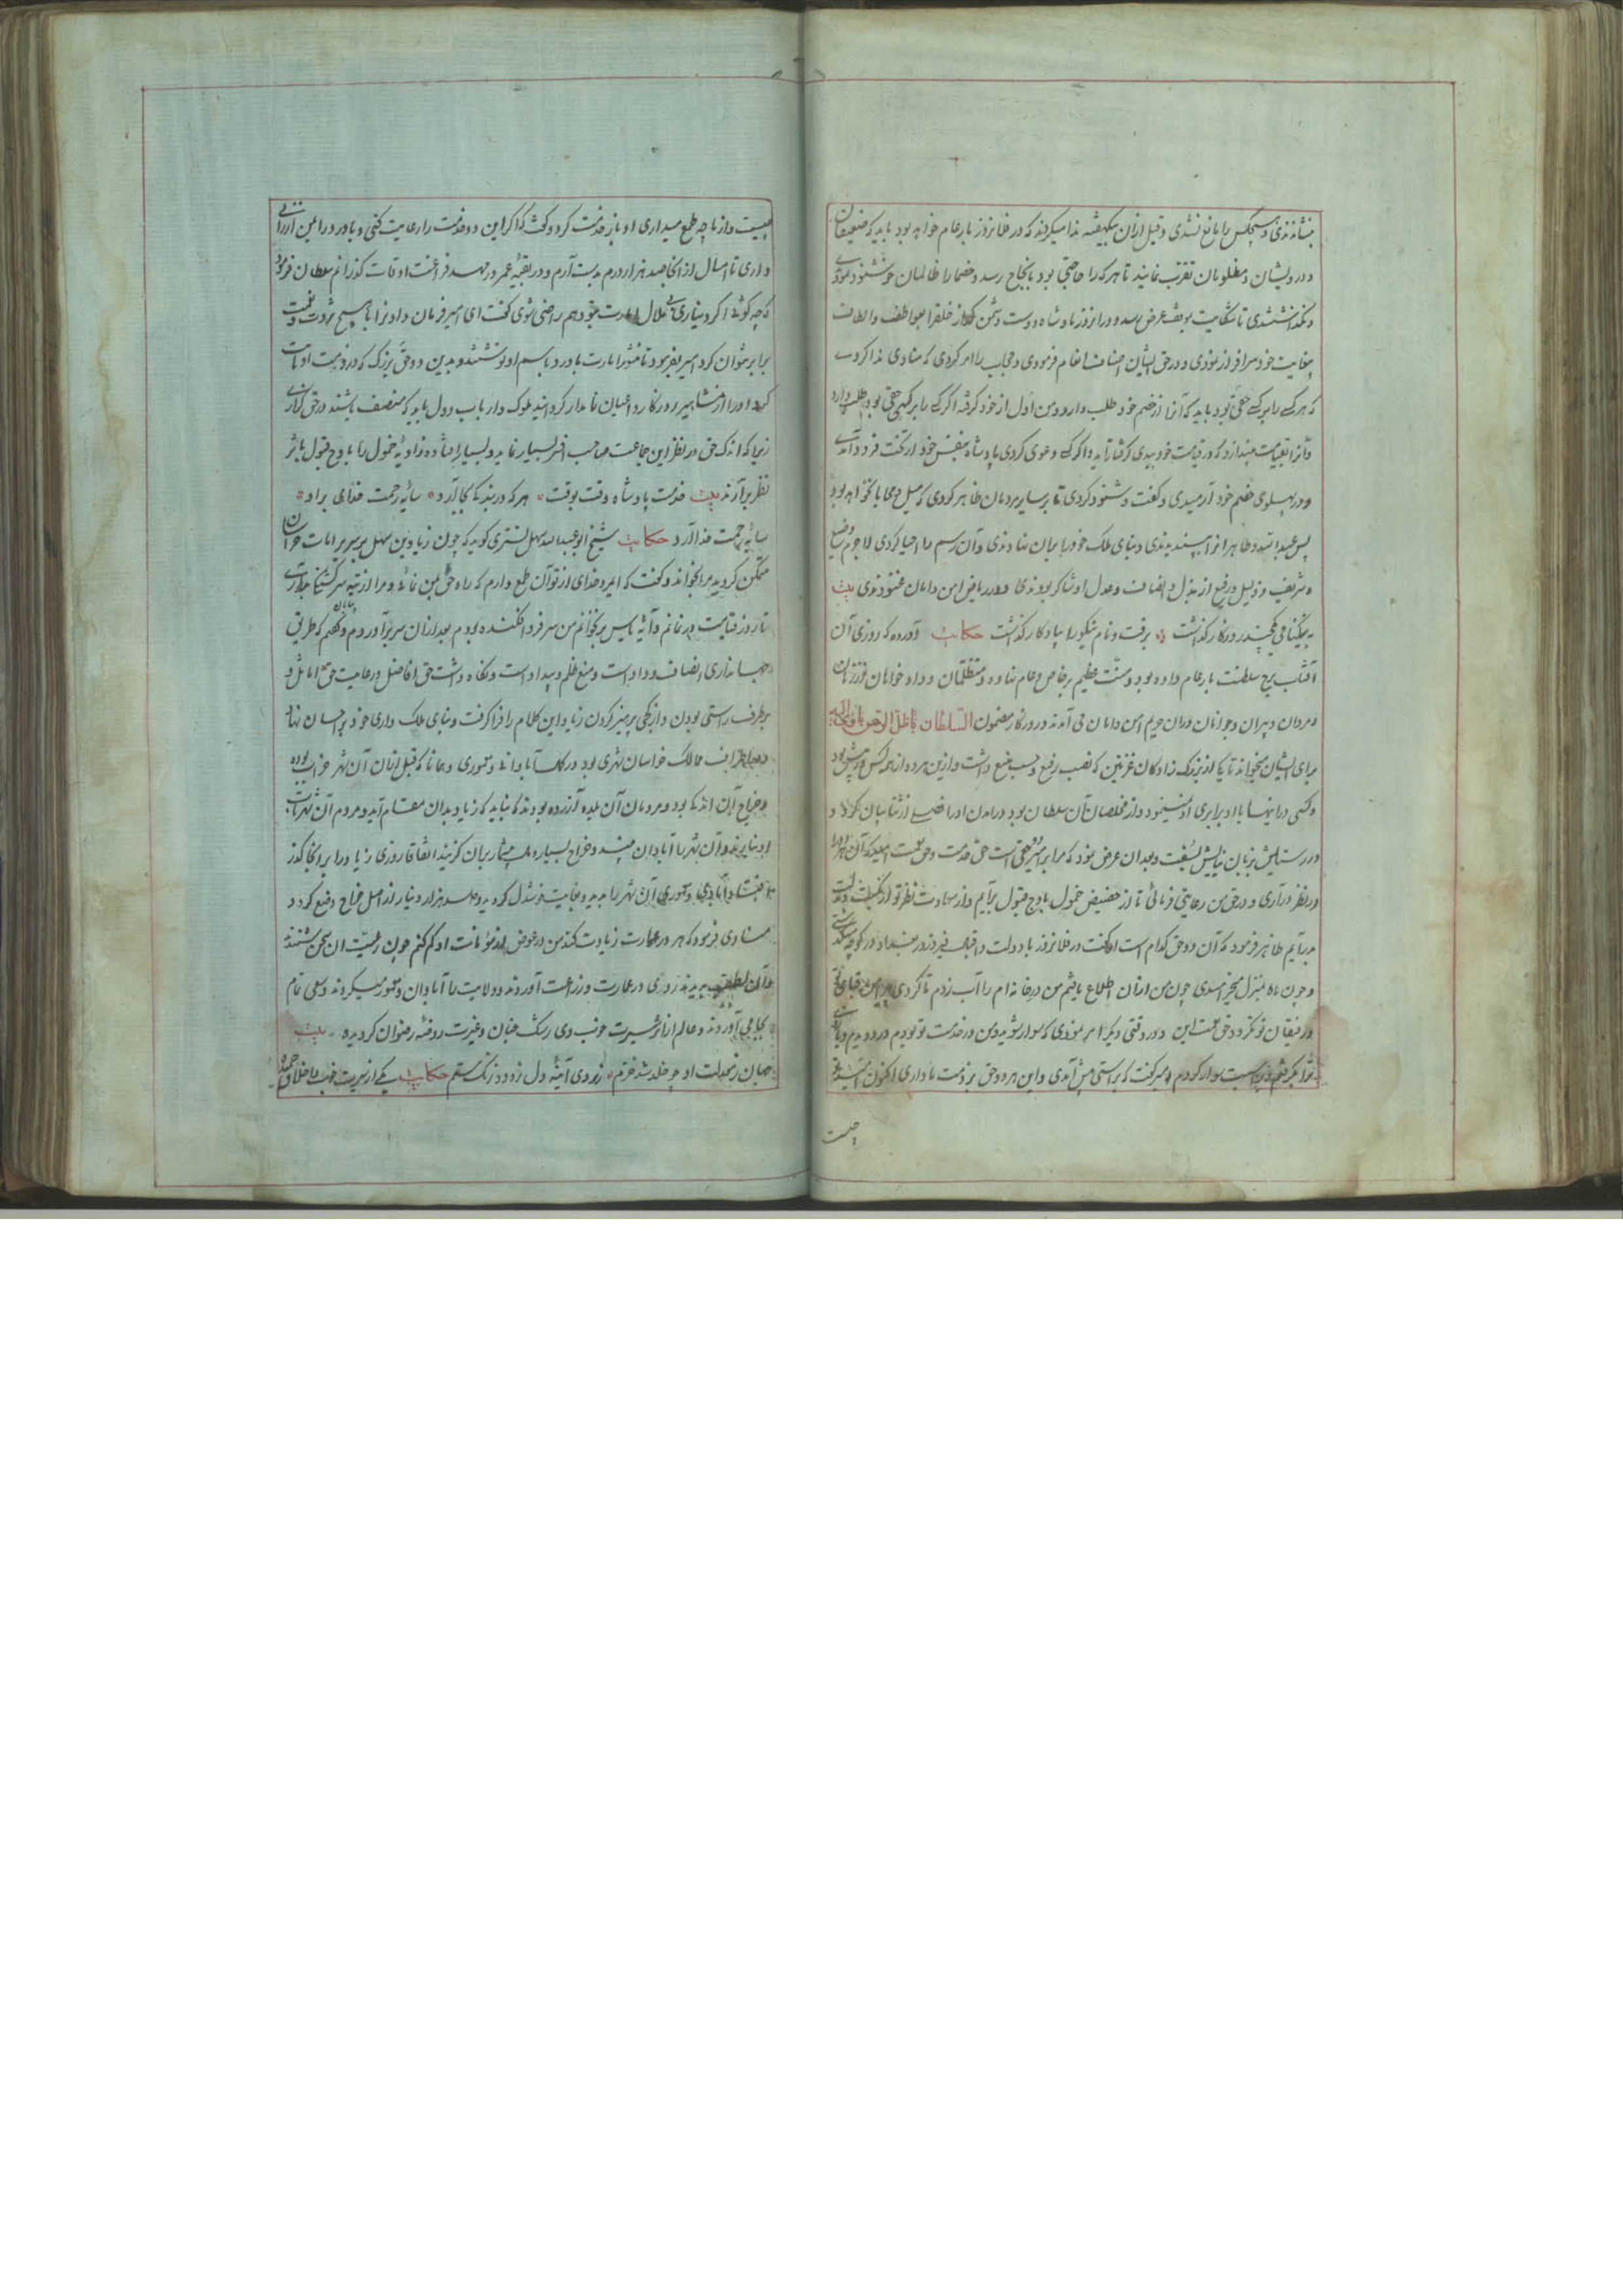 بنشاندندی و هیچکس را مانع نشدی و قبل ازان بیکهفته ندا میکردند که در فلانروز بار عام خواهد بود باید که ضعیفان
و درویشان و مظلومان تقرب نمایند تا هر که را حاجتی بود بانجاح رسد و خصما را ظالمان خوشنود نمودی
و نکذاشتندی تا شکایت بموقف عرض رسد و درانروز پادشاه دوست و دشمن را از خلق بعواطف و الطاف
بغایت خود سرافراز نمودی و در حق ایشان اصناف انعام فرمودی و حجاب را امر کردی که منادی ندا کردی
که هر که را بر کسی حقی بود باید که آنرا از خصم خود طلب دارد و من اول از خود کرفته اکر کسی را بر کسی حقی بود طلب دارد
و آنرا بقیامت نیندازد که در قیامت خود بیدی کرفتار آید و اکر کسی دعوی کردی پادشاه بنفس خود از تخت فرود آمدی
و در پهلوی خصم خود آرمیدی و کفت و شنود کردی تا بر سایر مردمان ظاهر کردی که میل و محابا نخواهد بود
پس عبدالله طاهر انرا پسندیدندی و بنای ملک خود را بران نهادندی و آن رسم را احیا کردی لاجرم وضیع
و شریف و ذلیل و رفیع از بذل و انصاف و عدل او شاکر بودندی و در ریاض امن و امان غنودندی بیت
به نیکنامی چندر روزکار کذاشت برفت و نام نیکو را یادکار کذاشت حکایت آورده که روزی آن
آفتاب برج سلطنت بار عام داده بود و منت عظیم بر خاص و عام نهاده و متظلمان و داد خواهان و زنان
و مردان و پیران و جوانان دران حریم امن و امان می آمدند و روزکار مضمون السلطان ظل الرحمن
برای ایشان میخواند تا یکی از بزرک زادکان غزنین که نصب رفیع و حسب منیع داشت و ازین هر دو از همه کس در پیش بود
و کسی دراینها با او برابری او نمینمود و از مخلصان آن سلطان بود درآمدن او را فصلی از ثنا بیان کرد و
در ستایش بزبان نیایش بسفت و بعد ان عرض نمود که مرا بر امیر دو حقی است حق خدمت و حق نعمت
در نظر درآری و در حق من رعایتی فرمائی تا از حضیض خمول باوج قبول برآیم و از سعادت نظر تو از نکبت
برآیم طاهر فرمود که آن دو حق کدام است او کفت در فلانروز با دولت و اقبال فیروز در بغداد در کوچه میکذشتی
و چون ماه بمنزل میخرامیدی چون من ازان اطلاع یافتم من در خانه ام را آب زدم تا کردی بر دامن قبای تو
و رفیقان تو نکردد حق نعمت این و در وقتی دیکر امر نمودی که سوار شوید و من در خدمت تو بودم دردو دیدم
ترا بکرفتم و بر اسب سوار کردم امیر کفت که براستی پیش آمدی و این هر دو حق بر ذمت ما داری اکنون
چیست
چیست و از ما چه طمع میداری او باز خدمت کرد و کفت که اکر این دو خدمت را رعایت کنی و باورد را بمن ارزانی
داری تا امسال از انجا صد هزار درم بدست آرم و در بقیه عمر در مهد فراغت اوقات کذرانم سلطان فرمود
که چه کوئی اکر دیناری بی ملال امارت بتو دهم راضی شوی کفت ای امیر فرمان داد ترا با هیچ ثروت و نعمت
برابر نتوان کرد امیر بفرمود تا منشور امارت باورد باسم او نوشتند و بدین دو حق بزرک که در ذمت او ثابت
کرد او را از مشاهیر روزکار و اعیان نامدار کردانید ملوک و ارباب دول باید که منصف باشند در حق کذاری
زیرا که اندک حق در نظر این جماعت صاحب افسر بسیار نماید و بسیار افتاده زاویه خمول را باوج قبول باثر
نظر برآرند بیت خدمت پادشاه وقت بوقت هر که در بند کی بجا آرد سایه رحمت خدای براد
سایه رحمت خدا آرد حکایت شیخ ابو عبدالله سهل تستری کوید که چون زیاد بن سهل بر سریر امانت خراسان
متمکن کردید مرا بخواند و کفت که ایمرد خدای از تو آن طمع دارم که راه حق بمن نمائی و مرا از تیه سرکشتکی
تا روز قیامت در نمانم و آیه یأس بر نخوانم من سر فرو افکنده بودم بعد ازان سر برآوردم و کفتم که طریق
جهانداری انصاف و داد است و منع ظلم و بیداد است و نکاه داشت حق افاضل و رعایت حق اماثل و
بر طرف راستی بودن و از کجی پرهیز کردن زیاد این کلام را فرا کرفت و بنای ملک داری خود بر احسان نهاد
در اطراف ممالک خراسان شهری بود در کمال آبادانی و معموری و همانا که قبل ازان آن شهر خراب بوده
و خراج آن اندک بود و مردمان آن بلده آزرده بودند که نباید که زیاد بدان مقام آید و مردم آن شهر
او بنا برند و آن شهر را آبادان بیند و خراج بسیار و مبلغ بیشمار بران کزیند اتفاقا روزی زیاد را بر انجا کذر
افتاد آبادی و معموری آن شهر را بدید و بغایت خوشدل کردید و مبلغ سه هزار دینار از اصل خراج وضع کرد و
منادی فرمود که هر که در عمارت زیادت کند من در عوض از مؤنات او کم کنم چون رعیت ان سخن شنیدند
و آن لطف بدیدند روی در عمارت و زراعت آوردند و ولایت را آبادان و معمور میکردند و سعی تمام
بجا می آوردند و عالم از اثر سیرت خوب وی رشک جنان و غیرت روضه رضوان کردیده بیت
جهان ز معدلت او چو خلد شد خرم ز روی آینه دل زدود زنک ستم حکایت یکی از سیرت خوب و اخلاق حمیده